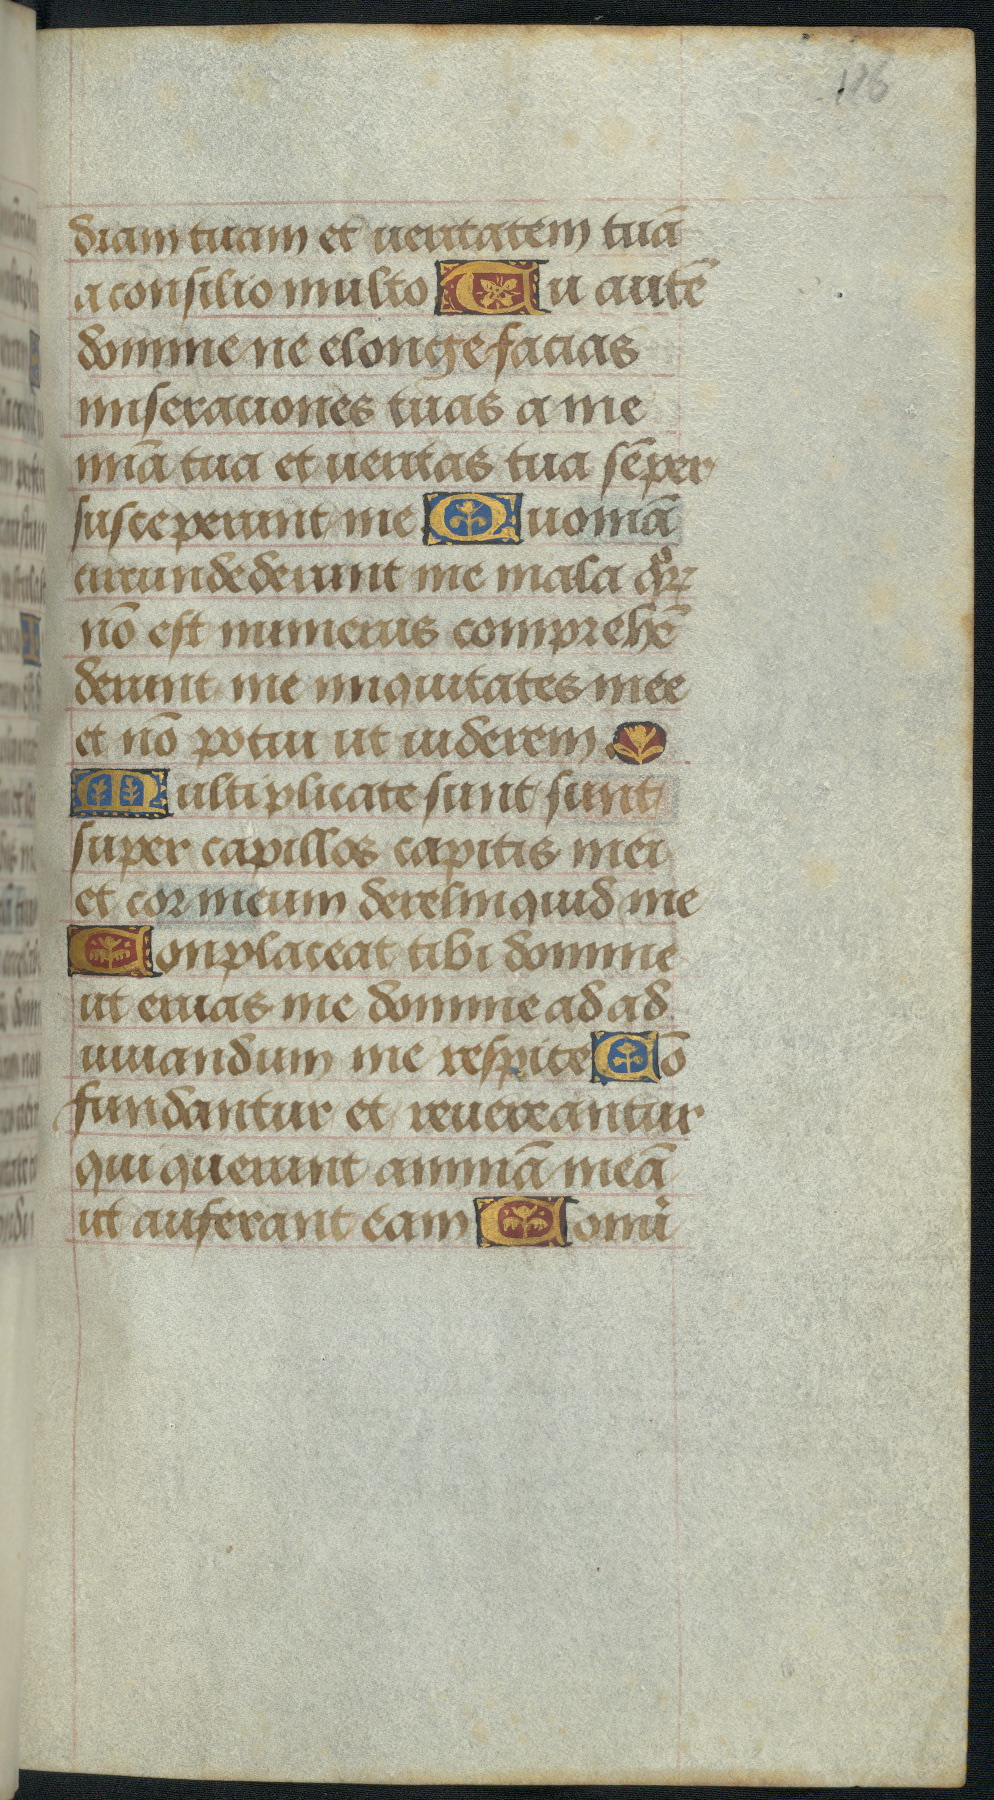 126
diam tuam et ueritatem tuā
a consilio multo Tu autē
domine ne elonge facias
miseraciones tuas a me
mīa tua et ueritas tua sēper
susceperunt me Quoniā
circundederunt me mala qͦꝝ
nō est numerus comprehē
derunt me iniquitates mee
et nō potui ut uiderem
Multiplicate sunt sunt
super capillos capitis mei
et cor meum derelinquid me
Conplaceat tibi domine
ut eruas me domine ad ad
iuuandum me respice Cō
fundantur et reuereantur
qui querunt animā meā
ut auferant eam Conui